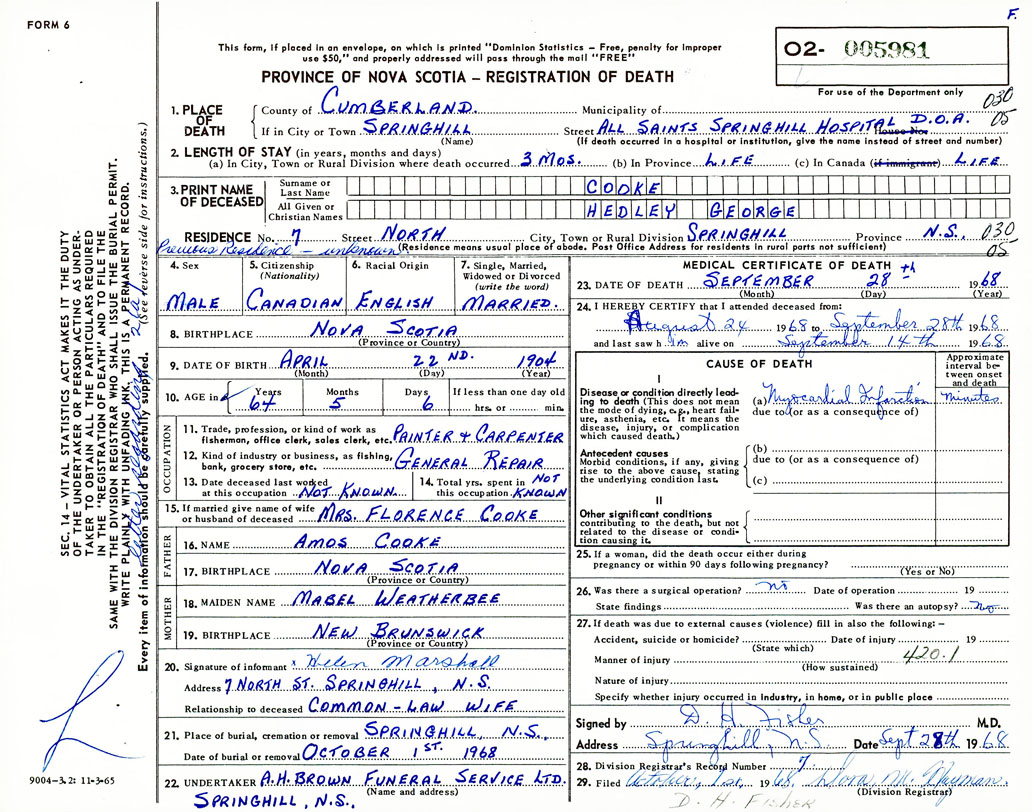 FORM 6
F.
This form, if placed in an envelope, on which is printed "Dominion Statistics – Free, penalty for improper
use $50," and properly addressed will pass through the mail "FREE"
O2- 005981
PROVINCE OF NOVA SCOTIA – REGISTRATION OF DEATH
For use of the Department only
1. PLACE OF DEATH
County of CUMBERLAND. Municipality of 030
If in City or Town SPRINGHILL Street ALL SAINTS SPRINGHILL HOSPITAL D.O.A. House No. 05
(Name) (If death occurred in a hospital or institution, give the name instead of street and number)
2. LENGTH OF STAY (in years, months and days)
(a) In City, Town or Rural Division where death occurred 3 MOS. (b) In Province LIFE (c) In Canada (if immigrant) LIFE
3. PRINT NAME OF DECEASED
Surname or Last Name COOKE
All Given or Christian Names HEDLEY GEORGE
RESIDENCE No. 7 Street NORTH City, Town or Rural Division SPRINGHILL Province N.S. 030
Previous Residence – unknown (Residence means usual place of abode. Post Office Address for residents in rural parts not sufficient) 05
4. Sex MALE
5. Citizenship (Nationality) CANADIAN
6. Racial Origin ENGLISH
7. Single, Married, Widowed or Divorced (write the word) MARRIED.
8. BIRTHPLACE NOVA SCOTIA
(Province or Country)
9. DATE OF BIRTH APRIL 22 ND. 1904
(Month) (Day) (Year)
10. AGE in Years 64 Months 5 Days 6 If less than one day old hrs. or min.
OCCUPATION
11. Trade, profession, or kind of work as fisherman, office clerk, sales clerk, etc. PAINTER & CARPENTER
12. Kind of industry or business, as fishing, bank, grocery store, etc. GENERAL REPAIR
13. Date deceased last worked at this occupation NOT KNOWN
14. Total yrs. spent in this occupation NOT KNOWN
15. If married give name of wife or husband of deceased MRS. FLORENCE COOKE
FATHER
16. NAME AMOS COOKE
17. BIRTHPLACE NOVA SCOTIA
(Province or Country)
MOTHER
18. MAIDEN NAME MABEL WEATHERBEE
19. BIRTHPLACE NEW BRUNSWICK
(Province or Country)
20. Signature of informant x Helen Marshall
Address 7 NORTH ST. SPRINGHILL, N.S.
Relationship to deceased COMMON-LAW WIFE
21. Place of burial, cremation or removal SPRINGHILL, N.S.,
Date of burial or removal OCTOBER 1ST. 1968
22. UNDERTAKER A.H. BROWN FUNERAL SERVICE LTD.
(Name and address)
SPRINGHILL, N.S.,
MEDICAL CERTIFICATE OF DEATH
23. DATE OF DEATH SEPTEMBER 28th 1968
(Month) (Day) (Year)
24. I HEREBY CERTIFY that I attended deceased from:
August 24 1968 to September 28th 1968
and last saw him alive on September 14th 1968
CAUSE OF DEATH
Approximate interval between onset and death
I
Disease or condition directly leading to death (This does not mean the mode of dying, e.g., heart failure, asthenia, etc. It means the disease, injury, or complication which caused death.)
(a) Myocardial Infarction minutes
due to (or as a consequence of)
Antecedent causes
Morbid conditions, if any, giving rise to the above cause, stating the underlying condition last.
(b)
due to (or as a consequence of)
(c)
II
Other significant conditions
contributing to the death, but not related to the disease or condition causing it.
25. If a woman, did the death occur either during
pregnancy or within 90 days following pregnancy?
(Yes or No)
26. Was there a surgical operation? no Date of operation 19
State findings Was there an autopsy? no
27. If death was due to external causes (violence) fill in also the following: –
Accident, suicide or homicide? Date of injury 19
(State which) 420.1
Manner of injury
(How sustained)
Nature of injury
Specify whether injury occurred in industry, in home, or in public place
Signed by D. H. Fisher M.D.
Address Springhill, N.S Date Sept 28th 1968
28. Division Registrar's Record Number 7
29. Filed October 1st, 1968
(Division Registrar)
D. H. FISHER
SEC. 14 – VITAL STATISTICS ACT MAKES IT THE DUTY
OF THE UNDERTAKER OR PERSON ACTING AS UNDER-
TAKER TO OBTAIN ALL THE PARTICULARS REQUIRED
IN THE "REGISTRATION OF DEATH" AND TO FILE THE
SAME WITH THE DIVISION REGISTRAR WHO SHALL ISSUE THE BURIAL PERMIT.
WRITE PLAINLY WITH UNFADING INK. THIS IS A PERMANENT RECORD.
Every item of information should be carefully supplied. (See reverse side for instructions.)
9004-3.2: 11-3-65